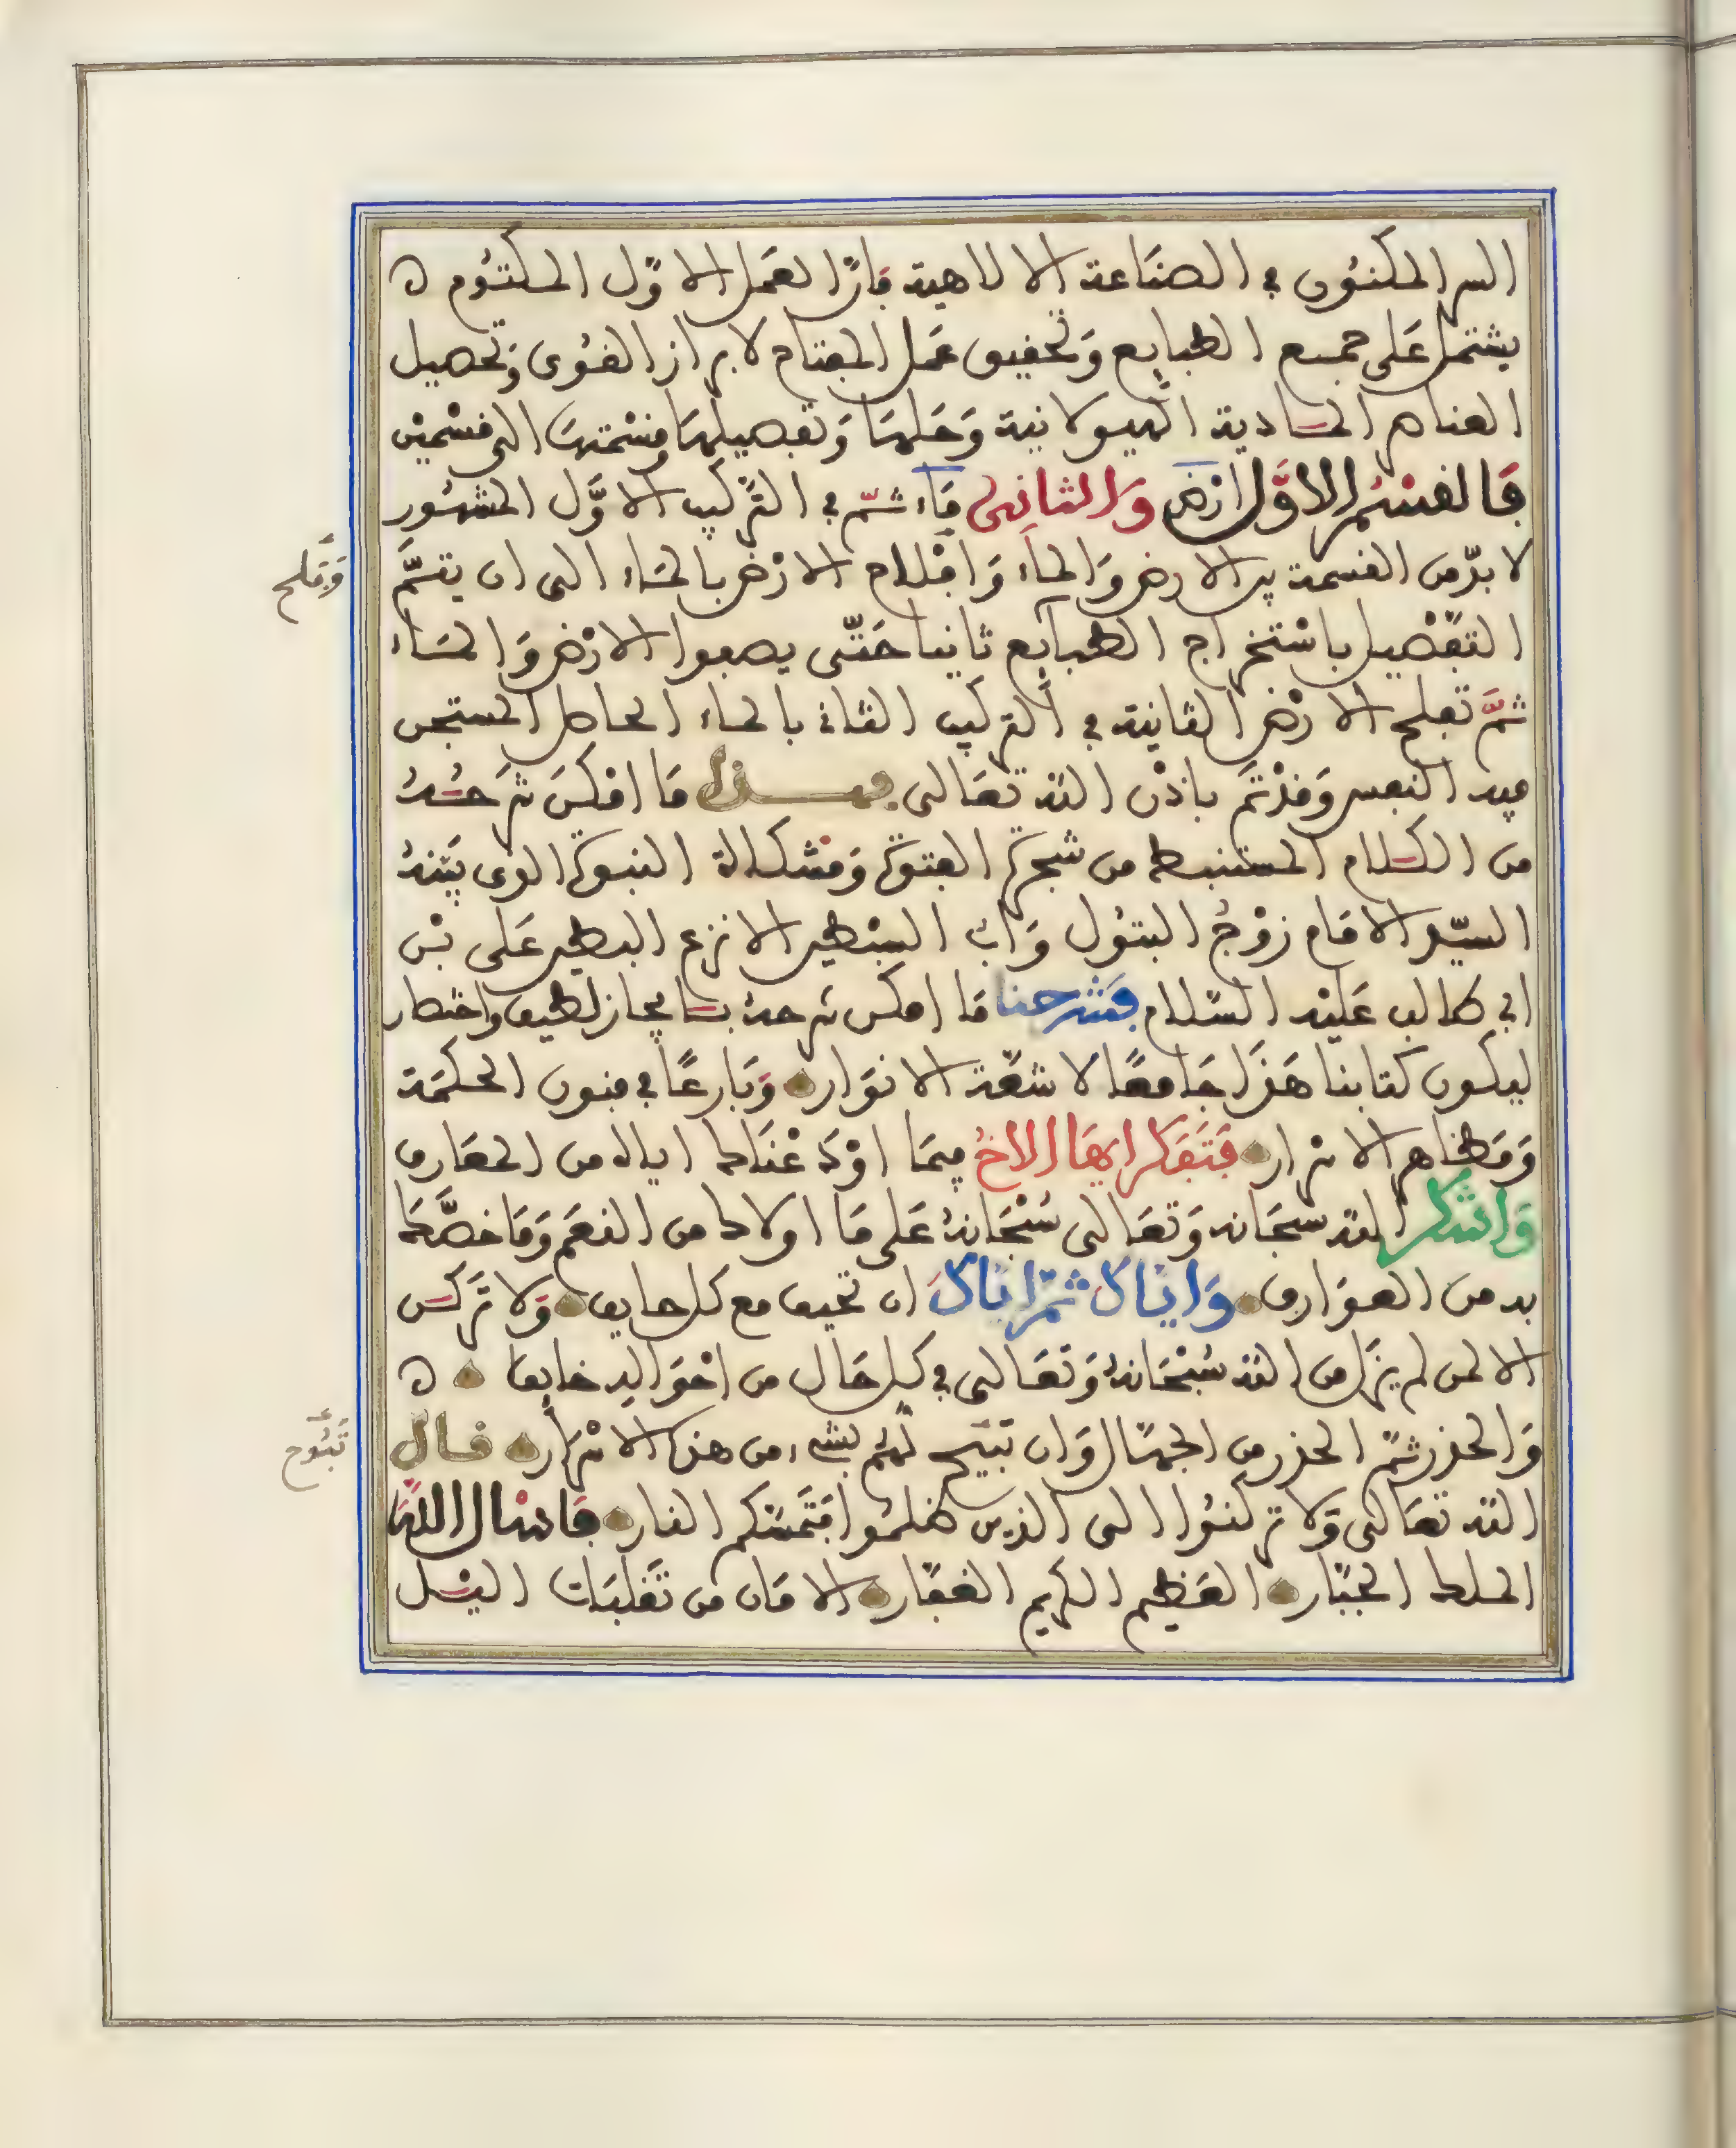 السر المكنون في الصناعة الالاهية فان العمل الاول المكتوم ه
يشتمل على جميع الطبايع وتحقيق عمل المفتاح لابراز القوى وتحصيل
العناصر المادية الهيولانية وحلها وتفصيلها وقسمتها الى قسمين
فالقسم الاول ارض والثاني ماء ثم في التركيب الاول المشهور
لا بد من القسمة بين الارض والماء واملاح الارض بالماء الى ان يتم
التفصيل باستخراج الطبايع ثانيا حتى يصفوا الارض والماء
ثم تملح الارض الثانية في التركيب الثاني بالماء الحامل المستجن
فيه النفس وقد تم باذن الله تعالى فهذا ما امكن شرحه
من الكلام المستنبط من شجرة الفتوة ومشكاة النبوة الذى بينه
السيد الامام زوج البتول واب السبطين الانزع البطين على بن
ابي طالب عليه السلام فشرحنا ما امكن شرحه بايجاز لطيف واختصار
ليكون كتابنا هذا جامعا لاشعة الانوار وبارعا في فنون الحكمة
ومظاهر الاسرار فتفكر ايها الاخ فيما اودعناك اياه من المعارف
واشكر الله سبحانه وتعالى سبحانه على ما اولاك من النعم وما خصك
به من العوارف واياك ثم اياك ان تحيف مع كل حايف ولا تركن
الا لمن لم يزل من الله سبحانه وتعالى في كل حال من احواله خايف ه
والحذر ثم الحذر من الجهال وان تبيح لهم بشيء من هذه الاسرار قال
الله تعالى ولا تركنوا الى الذين ظلموا فتمسكم النار فاسال الله
الملك الجبار العظيم الكريم الغفار الامان من تقلبات الليل
وتملح
تبوح